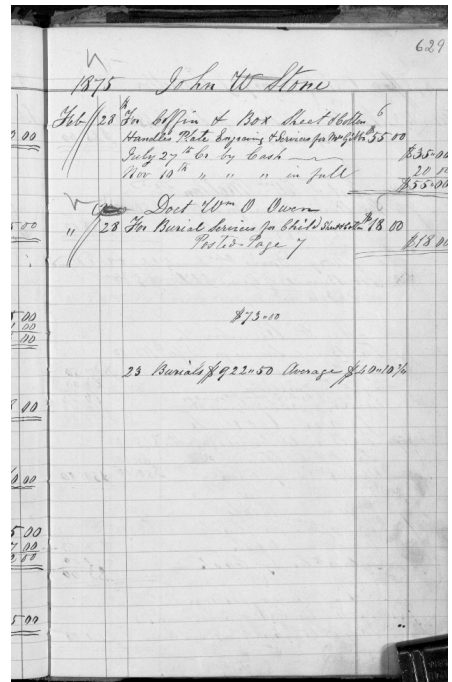 629
1875 John W Stone
Feb 28th For Coffin & Box Sheet & Cotton 6
Handles Plate Engraving & Services for Mrs $55 00
July 27th Cr by Cash $35=00
Nov 10th " " " in full 20 00
$55=00
Doct Wm O Owen
" 28 For Burial Services for Child $18 00
Posted-Page 7 $18 00
$73=00
23 Burials $922"50 Average $40"10